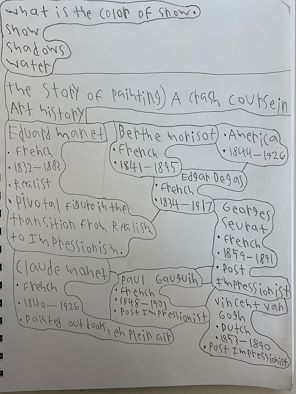 what is the color of snow.
snow
shadows
water
the Story of painting) A crash coursein
Art history
Eduard manet
• French
• 1832-1883
• Realist
• Pivotal figure in the
transition from Realism
to Impressionism.
Berthe morisot
• French
• 1841-1895
• America
• 1844-1926
Edgar Degas
• French
• 1834-1917
Georges
Seurat
• French
• 1859-1891
• Post
Impressionist
Claude monet
• French
• 1840-1926
• painted outdoors, en plein air
Paul Gauguin
• French
• 1848-1903
• Post Impressionist
vincent van
Gogh
• Dutch
• 1853-1890
• Post Impressionist